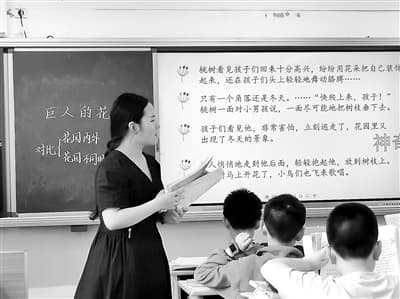 巨人的花
对比
花园内外
花园不同时
桃树看见孩子们回来十分高兴，纷纷用花朵把自己装饰
起来，还在孩子们头上轻轻地舞动胳膊……
只有一个角落还是冬天。……“快爬上来，孩子！”
桃树一面对小男孩说，一面尽可能地把树枝垂下去。
孩子们看见他，非常害怕，立刻逃走了，花园里又
出现了冬天的景象。
人悄悄地走到他后面，轻轻抱起他，放到树枝上。
马上开花了，小鸟们也飞来歌唱。
神奇